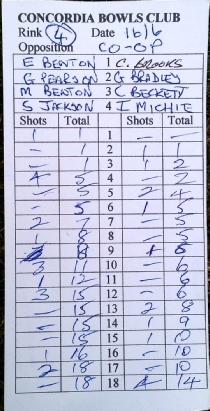 CONCORDIA BOWLS CLUB
Rink 4 Date 16/6
Opposition CO-OP
E BENTON 1 C. BROOKS
G PEARSON 2 G BRADLEY
M BENTON 3 C BECKETT
S JACKSON 4 I MICHIE
Shots Total Shots Total
1 1 1 — —
— 1 2 1 1
— 1 3 1 2
4 5 4 — 2
— 5 5 2 4
— 5 6 1 5
2 7 7 — 5
1 8 8 — 5
8 9 6
3 11 10 — 6
1 12 11 — 6
3 15 12 — 6
— 15 13 2 8
— 15 14 1 9
— 15 15 1 10
1 16 16 — 10
2 18 17 — 10
— 18 18 4 14